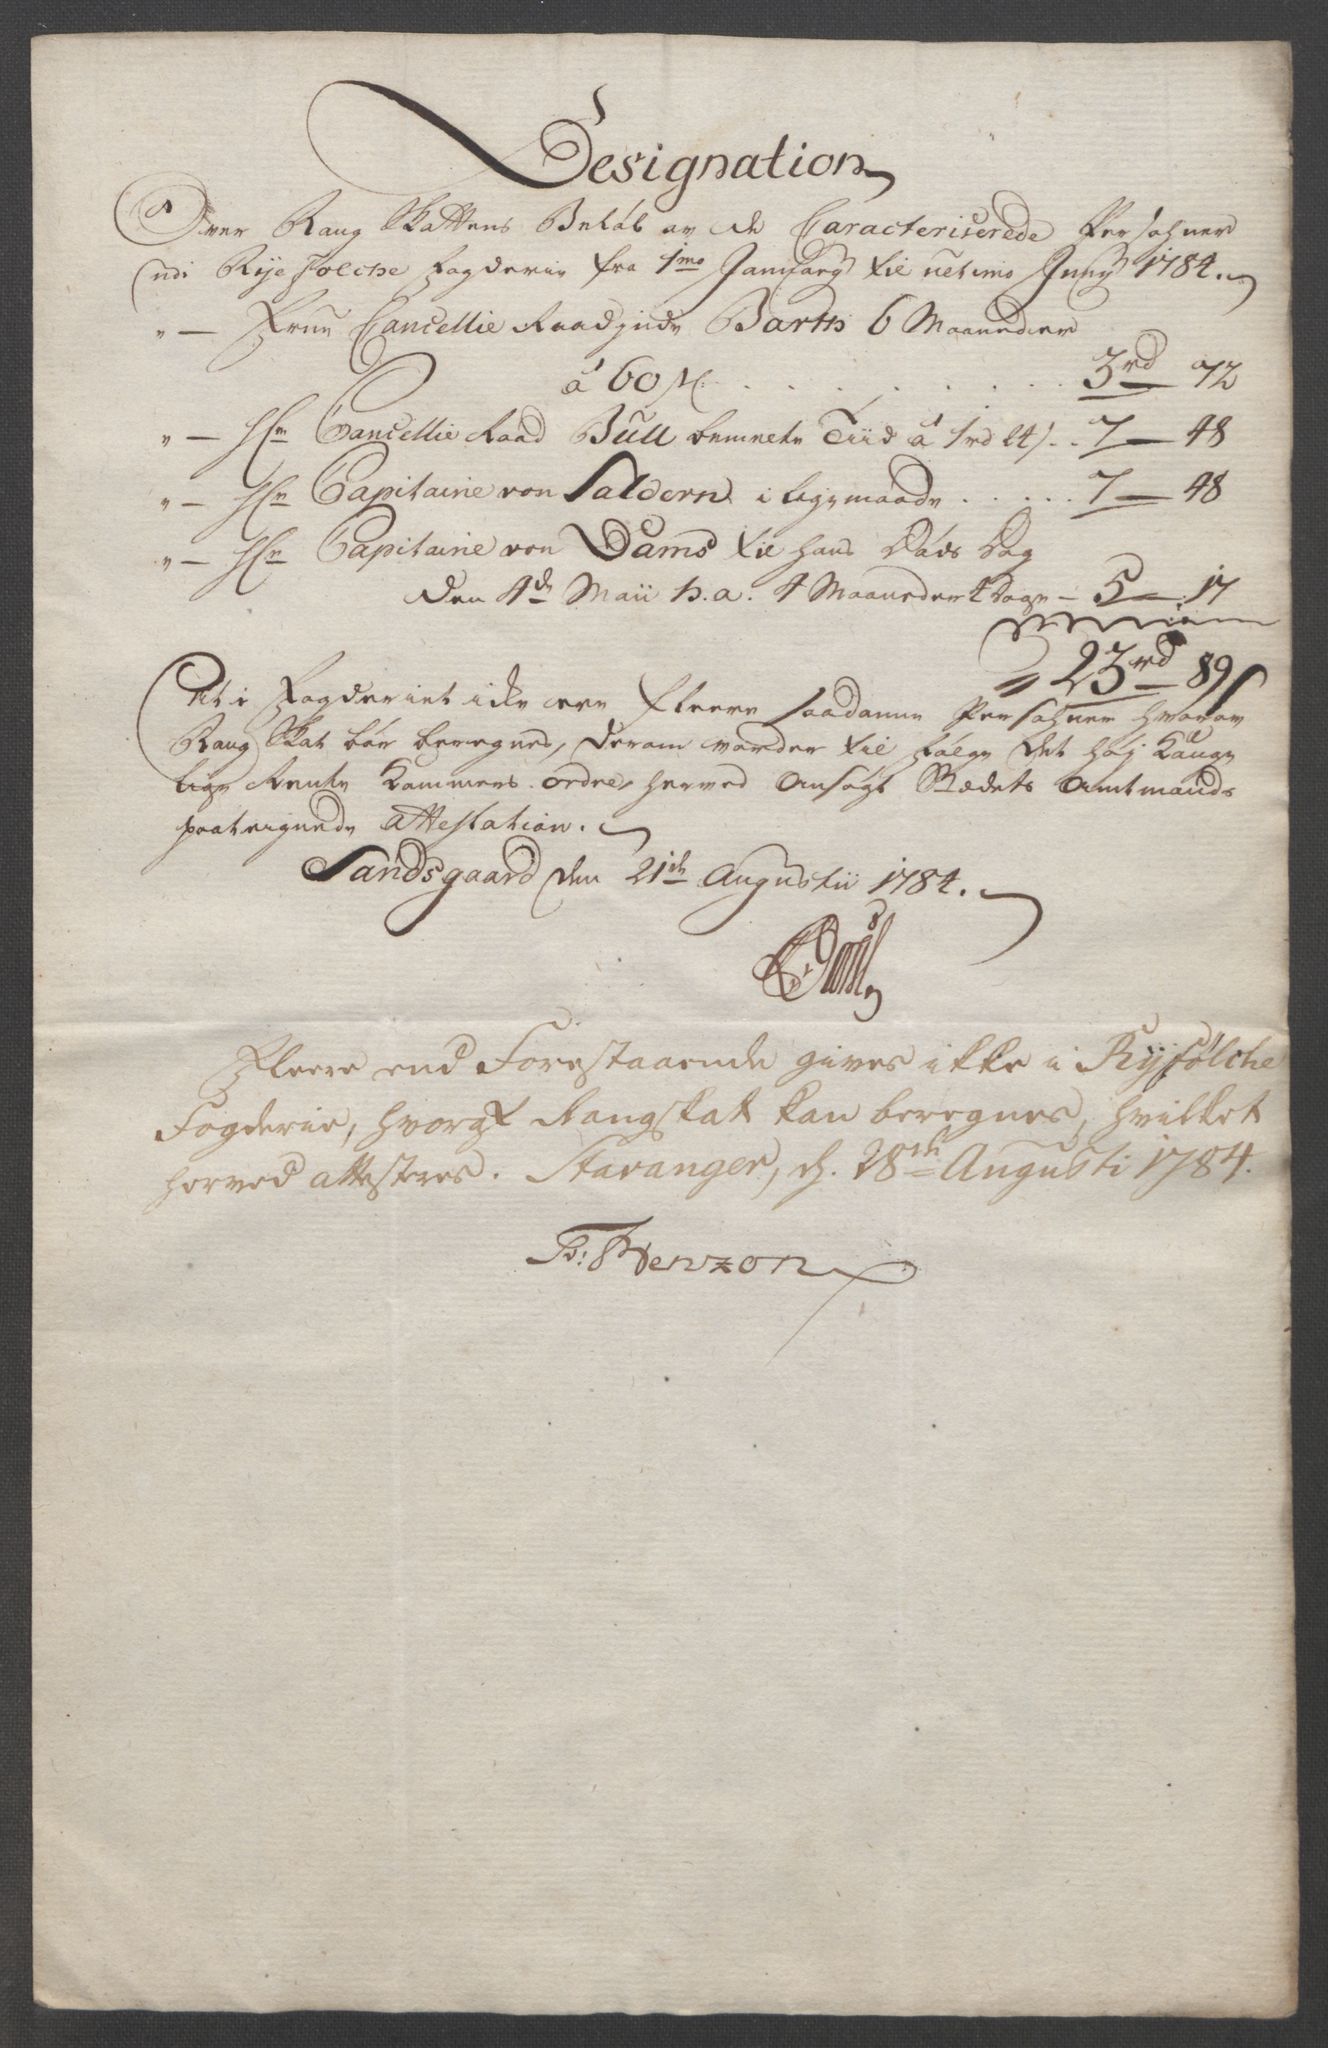 Designation
Over Rang Skattens Beløb av de Caracteriserede Persohner
udi Ryefølche Fogderie fra 1mo Januarÿ til ultimo Junÿ 1784.
" — Frue Cancellie Raadinde Barth 6 Maaneder
á 60 s. . . . . . . . . . 3rd 72
" — Hr Cancellie Raad Büll bemelte Tiid á 1rd 24 s . . 7 — 48
" — Hr Capitaine von Saldern i ligemaade . . . . . 7 — 48
" — Hr Capitaine von Dams til hans Døds Dag
den 4de Maii h.a. 4 Maaneder 4 Dage — 5 — 17
23rd 89 s
At i Fogderiet icke ere fleere saadanne Persohner hvorav
Rang Skat bør beregnes, derom vorder til følge Det høy Konge
lige Rente Kammers ordre, herved Ansøgt Stædets Amtmands
paateignede Attestation.
Sandsgaard den 21de Augustii 1784.
Fleere end Forestaaende gives ikke i Ryfølche
Fogderie, hvoraf Rangskat kan beregnes, hvilket
herved attesteres. Stavanger, d. 28de Augusti 1784.
Benzon